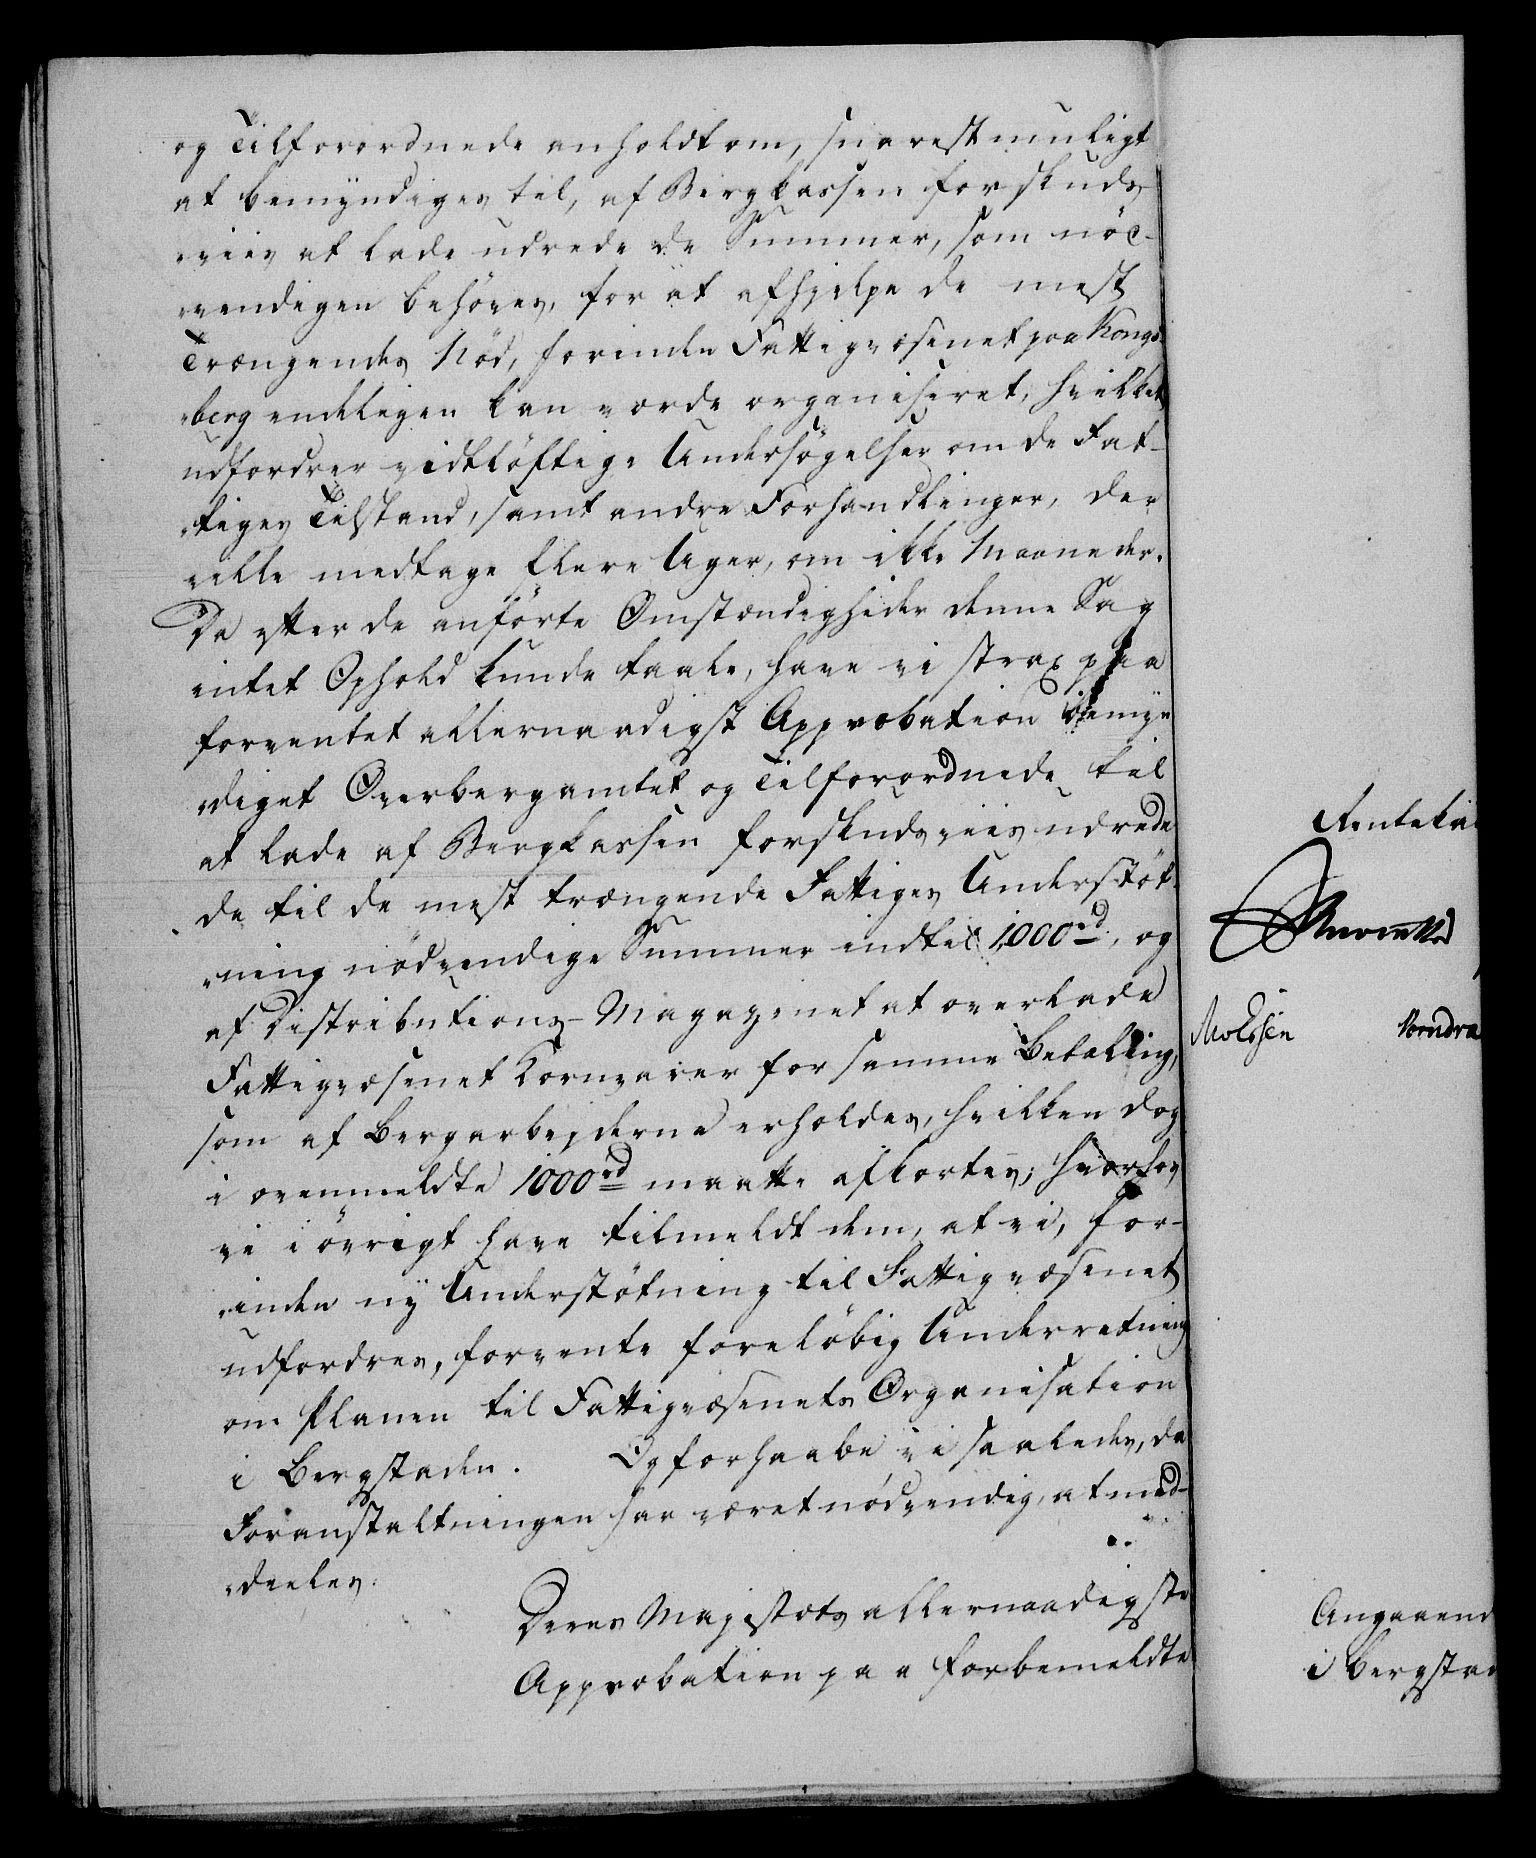 og Tilforordnede anholdt om, snarest muligt
at bemyndiges til, af Bergkassen forskuds-
„viis at lade udrede de Summer, som nöd-
„vendigen behöves, for at afhjelpe de mest
Trængendes Nöd, forinden Fattigvæsenet paa Kongs-
„berg endeligen kan vorde organiseret, hvilket
udfordrer vidtlöftige Undersögelser om de Fat-
„tiges Tilstand, samt andre Forhandlinger, der
ville medtage flere Uger, om ikke Maaneder.
Da efter de anförte Omstændigheder denne Sag
intet Ophold kunde taale, have vi strax paa
forventet allernaadigst Approbation bemyn
„diget Overbergamtet og Tilforordnede til
at lade af Bergkassen forskudsviis udrede
de til de mest trængende Fattiges Understöt-
„ning nödvendige Summer indtil 1000 rd, og
af Distributions-Magazinet at overlade
Fattigvæsenet Kornvarer for samme Betaling,
som af Bergarbejderne erholdes, hvilken dog
i ovenmeldte 1000 rd maatte afkortes; hvorhos
vi iövrigt have tilmeldt dem, at vi, for-
„inden ny Understötning til Fattigvæsenet
udfordres, forvente foreløbig Underretning
om Planen til Fattigvæsenets Organisation
i Bergstaden. Og forhaabe vi saaledes, da
Foranstaltningen har været nödvendig, at med-
„deeles
Deres Majestæts allernaadigste
Approbation paa forbemeldte
Rentekam
Angaaend
i Bergstad